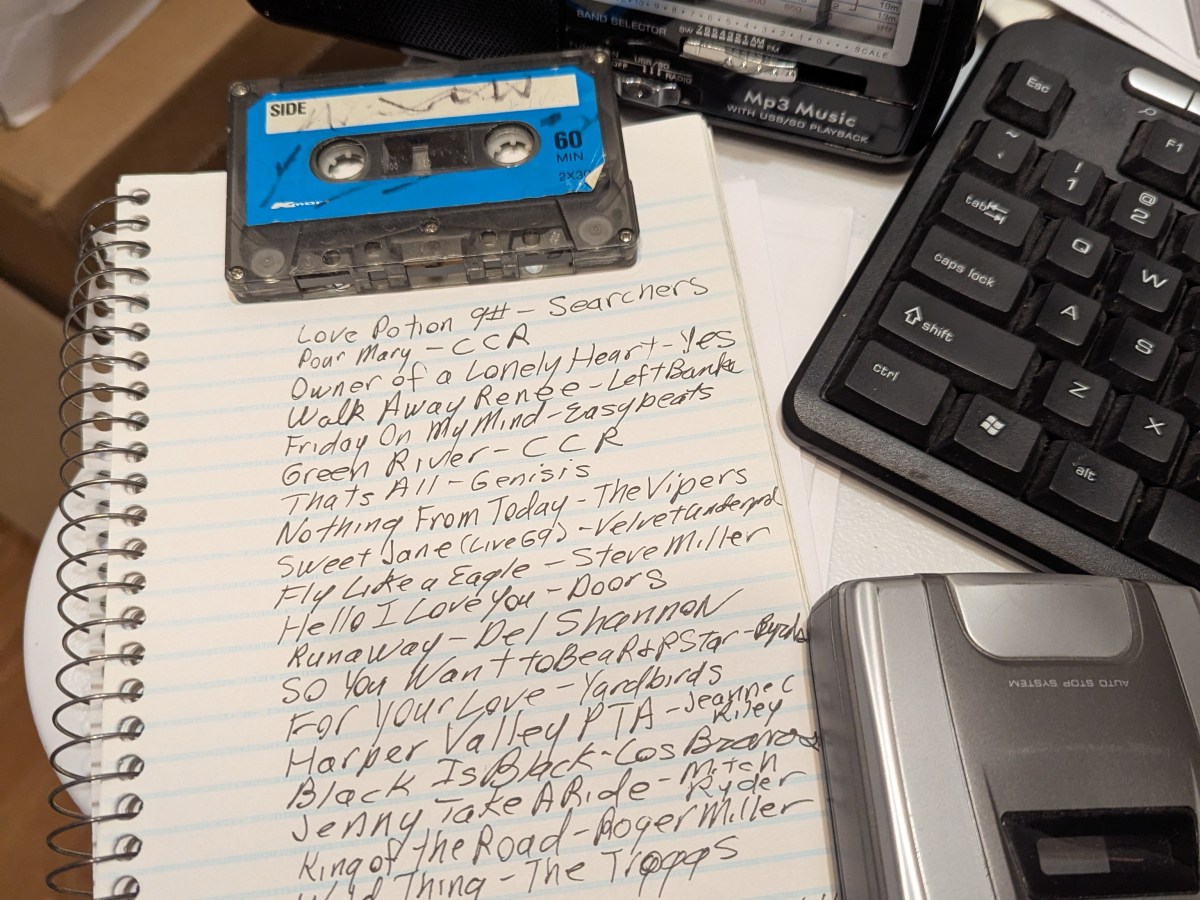 SIDE
60
MIN
BAND SELECTOR
SW
FM
SCALE
USB/SD
OFF
RADIO
Mp3 Music
WITH USB/SD PLAYBACK
Love Potion 9# - Searchers
Poar Mary - CCR
Owner of a Lonely Heart - Yes
Walk Away Renee - Left Banke
Friday On My Mind - Easybeats
Green River - CCR
Thats All - Genisis
Nothing From Today - The Vipers
Sweet Jane (Live 69) - Velvet
Fly Like a Eagle - Steve Miller
Hello I Love You - Doors
Runaway - Del Shannon
So You Want to Be a R&R Star - Byrds
For Your Love - Yardbirds
Harper Valley PTA - Jeanne C
Riley
Black Is Black - Los Bravos
Jenny Take A Ride - Mitch
Ryder
King of the Road - Roger Miller
Wild Thing - The Troggs
Esc
F1
~
!
1
@
2
tab
Q
W
caps lock
A
S
shift
Z
X
ctrl
alt
AUTO STOP SYSTEM